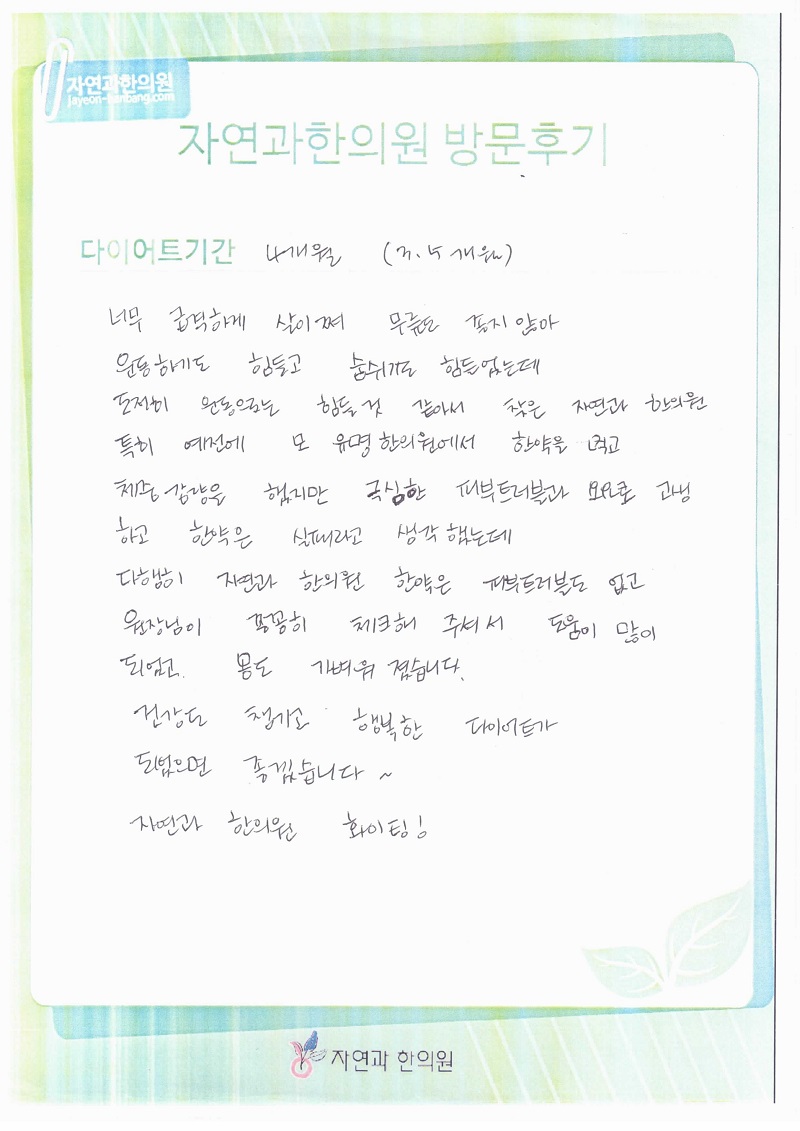 자연과한의원
jayeon-hanbang.com
자연과한의원 방문후기
다이어트기간 4개월 (3.5개월)
너무 급격하게 살이쪄 무릎도 좋지 않아
운동하기도 힘들고 숨쉬기도 힘들었는데
도저히 운동으로는 힘들것 같아서 찾은 자연과 한의원
특히 예전에 모 유명 한의원에서 한약을 먹고
체중감량을 했지만 극심한 피부트러블과 요요로 고생
하고 한약은 실패라고 생각 했는데
다행히 자연과 한의원 한약은 피부트러블도 없고
원장님이 꼼꼼히 체크해 주셔서 도움이 많이
되었고. 몸도 가벼워 졌습니다.
건강도 챙기고 행복한 다이어트가
되었으면 좋겠습니다~
자연과 한의원 화이팅!
자연과 한의원